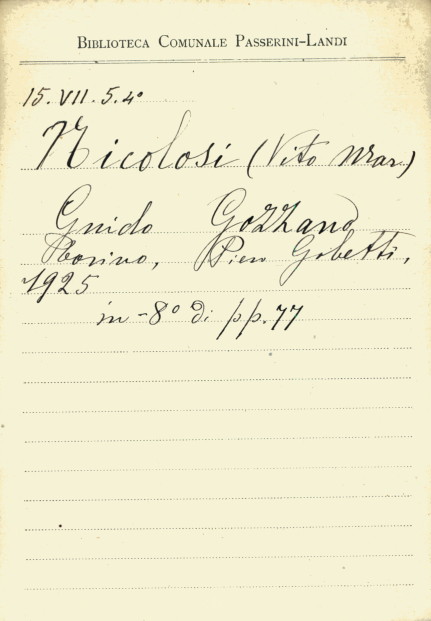 BIBLIOTECA COMUNALE PASSERINI-LANDI
15.VII.5.4°
Nicolosi (Vito Mar.)
Guido Gozzano
Torino, Piero Gobetti,
1925
in-8° di pp. 77